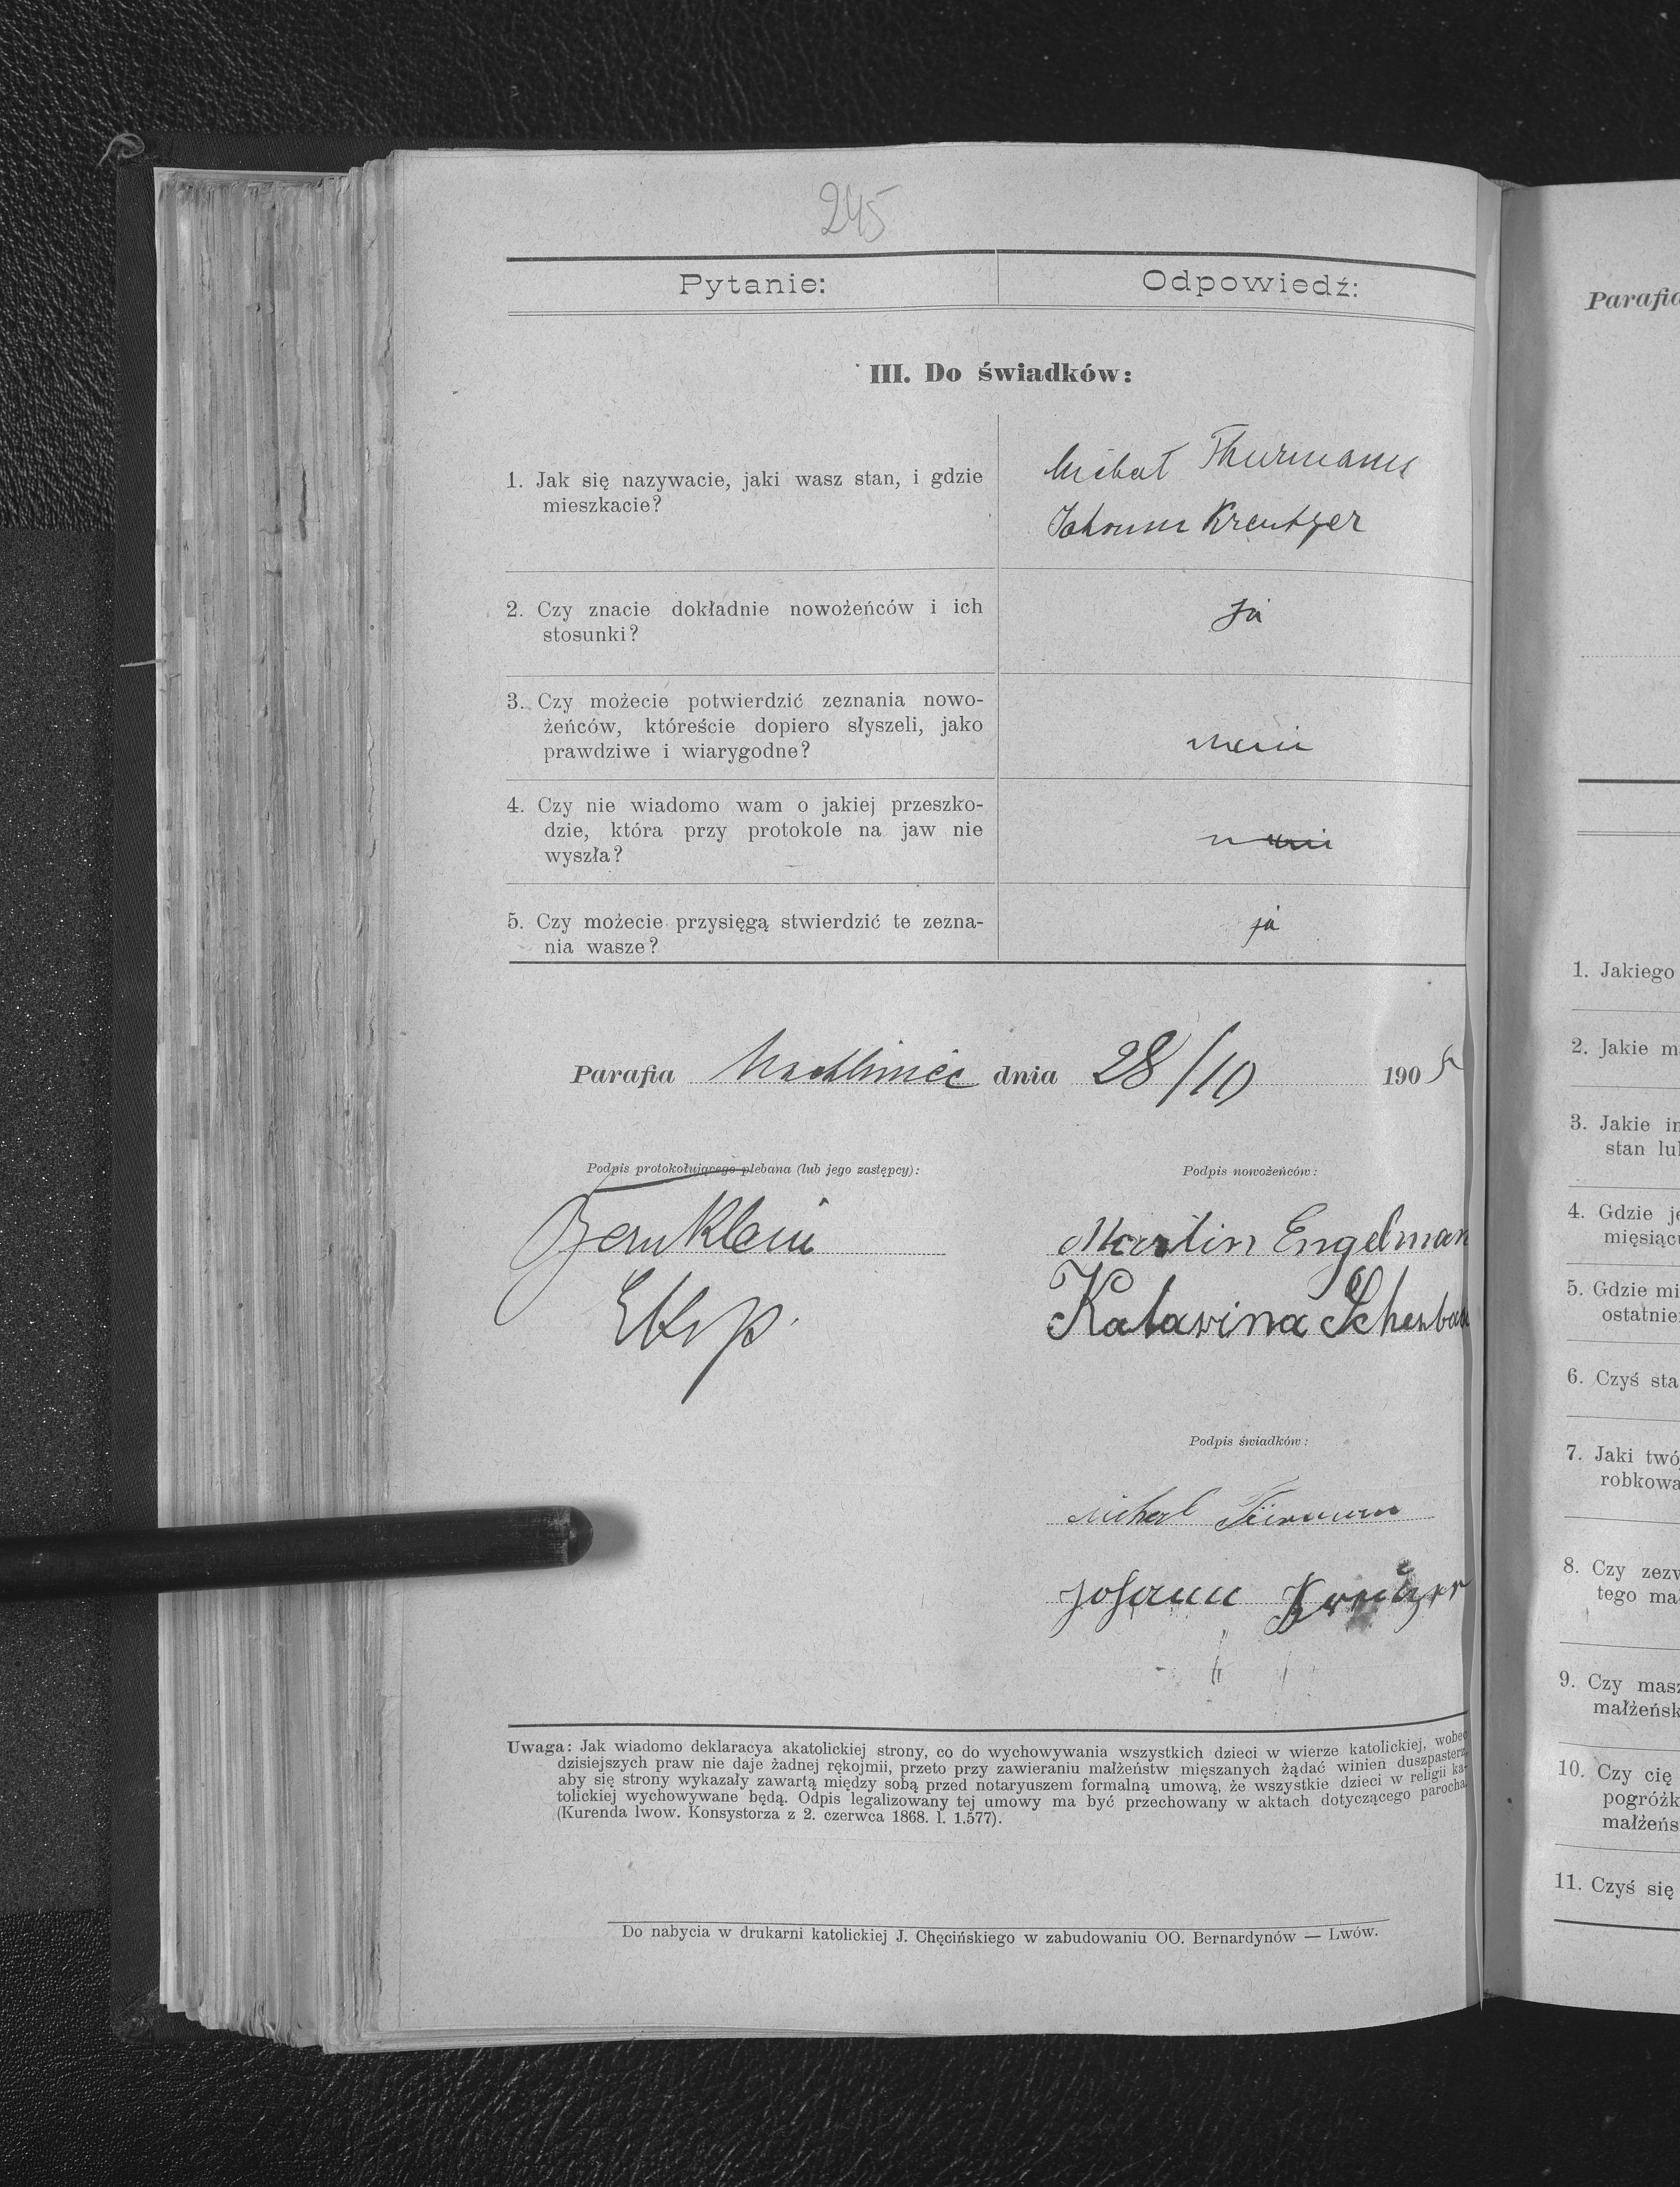 245
Pytanie:
Odpowiedź:
III. Do świadków:
1. Jak się nazywacie, jaki wasz stan, i gdzie
mieszkacie?
Michał Thurmann
Johann Kreutzer
2. Czy znacie dokładnie nowożeńców i ich
stosunki?
Ja
3. Czy możecie potwierdzić zeznania nowo-
żeńców, któreście dopiero słyszeli, jako
prawdziwe i wiarygodne?
4. Czy nie wiadomo wam o jakiej przeszko-
dzie, która przy protokole na jaw nie
wyszła?
5. Czy możecie przysięgą stwierdzić te zezna-
nia wasze?
ja
Parafia dnia 28/10 1905
Podpis protokołującego plebana (lub jego zastępcy):
Podpis nowożeńców:
Klein
Martin Engelman
Katarina
Podpis świadków:
Johann Kreutzer
Uwaga: Jak wiadomo deklaracya akatolickiej strony, co do wychowywania wszystkich dzieci w wierze katolickiej, wobec
dzisiejszych praw nie daje żadnej rękojmii, przeto przy zawieraniu małżeństw mięszanych żądać winien duszpasterz,
aby się strony wykazały zawartą między sobą przed notaryuszem formalną umową, że wszystkie dzieci w religii ka-
tolickiej wychowywane będą. Odpis legalizowany tej umowy ma być przechowany w aktach dotyczącego parocha.
(Kurenda lwow. Konsystorza z 2. czerwca 1868. l. 1.577).
Do nabycia w drukarni katolickiej J. Chęcińskiego w zabudowaniu OO. Bernardynów — Lwów.
Parafia
1. Jakiego
2. Jakie
3. Jakie
stan
4. Gdzie
5. Gdzie
6. Czyś
7. Jaki
8. Czy
tego
9. Czy
10. Czy cię
11. Czyś się